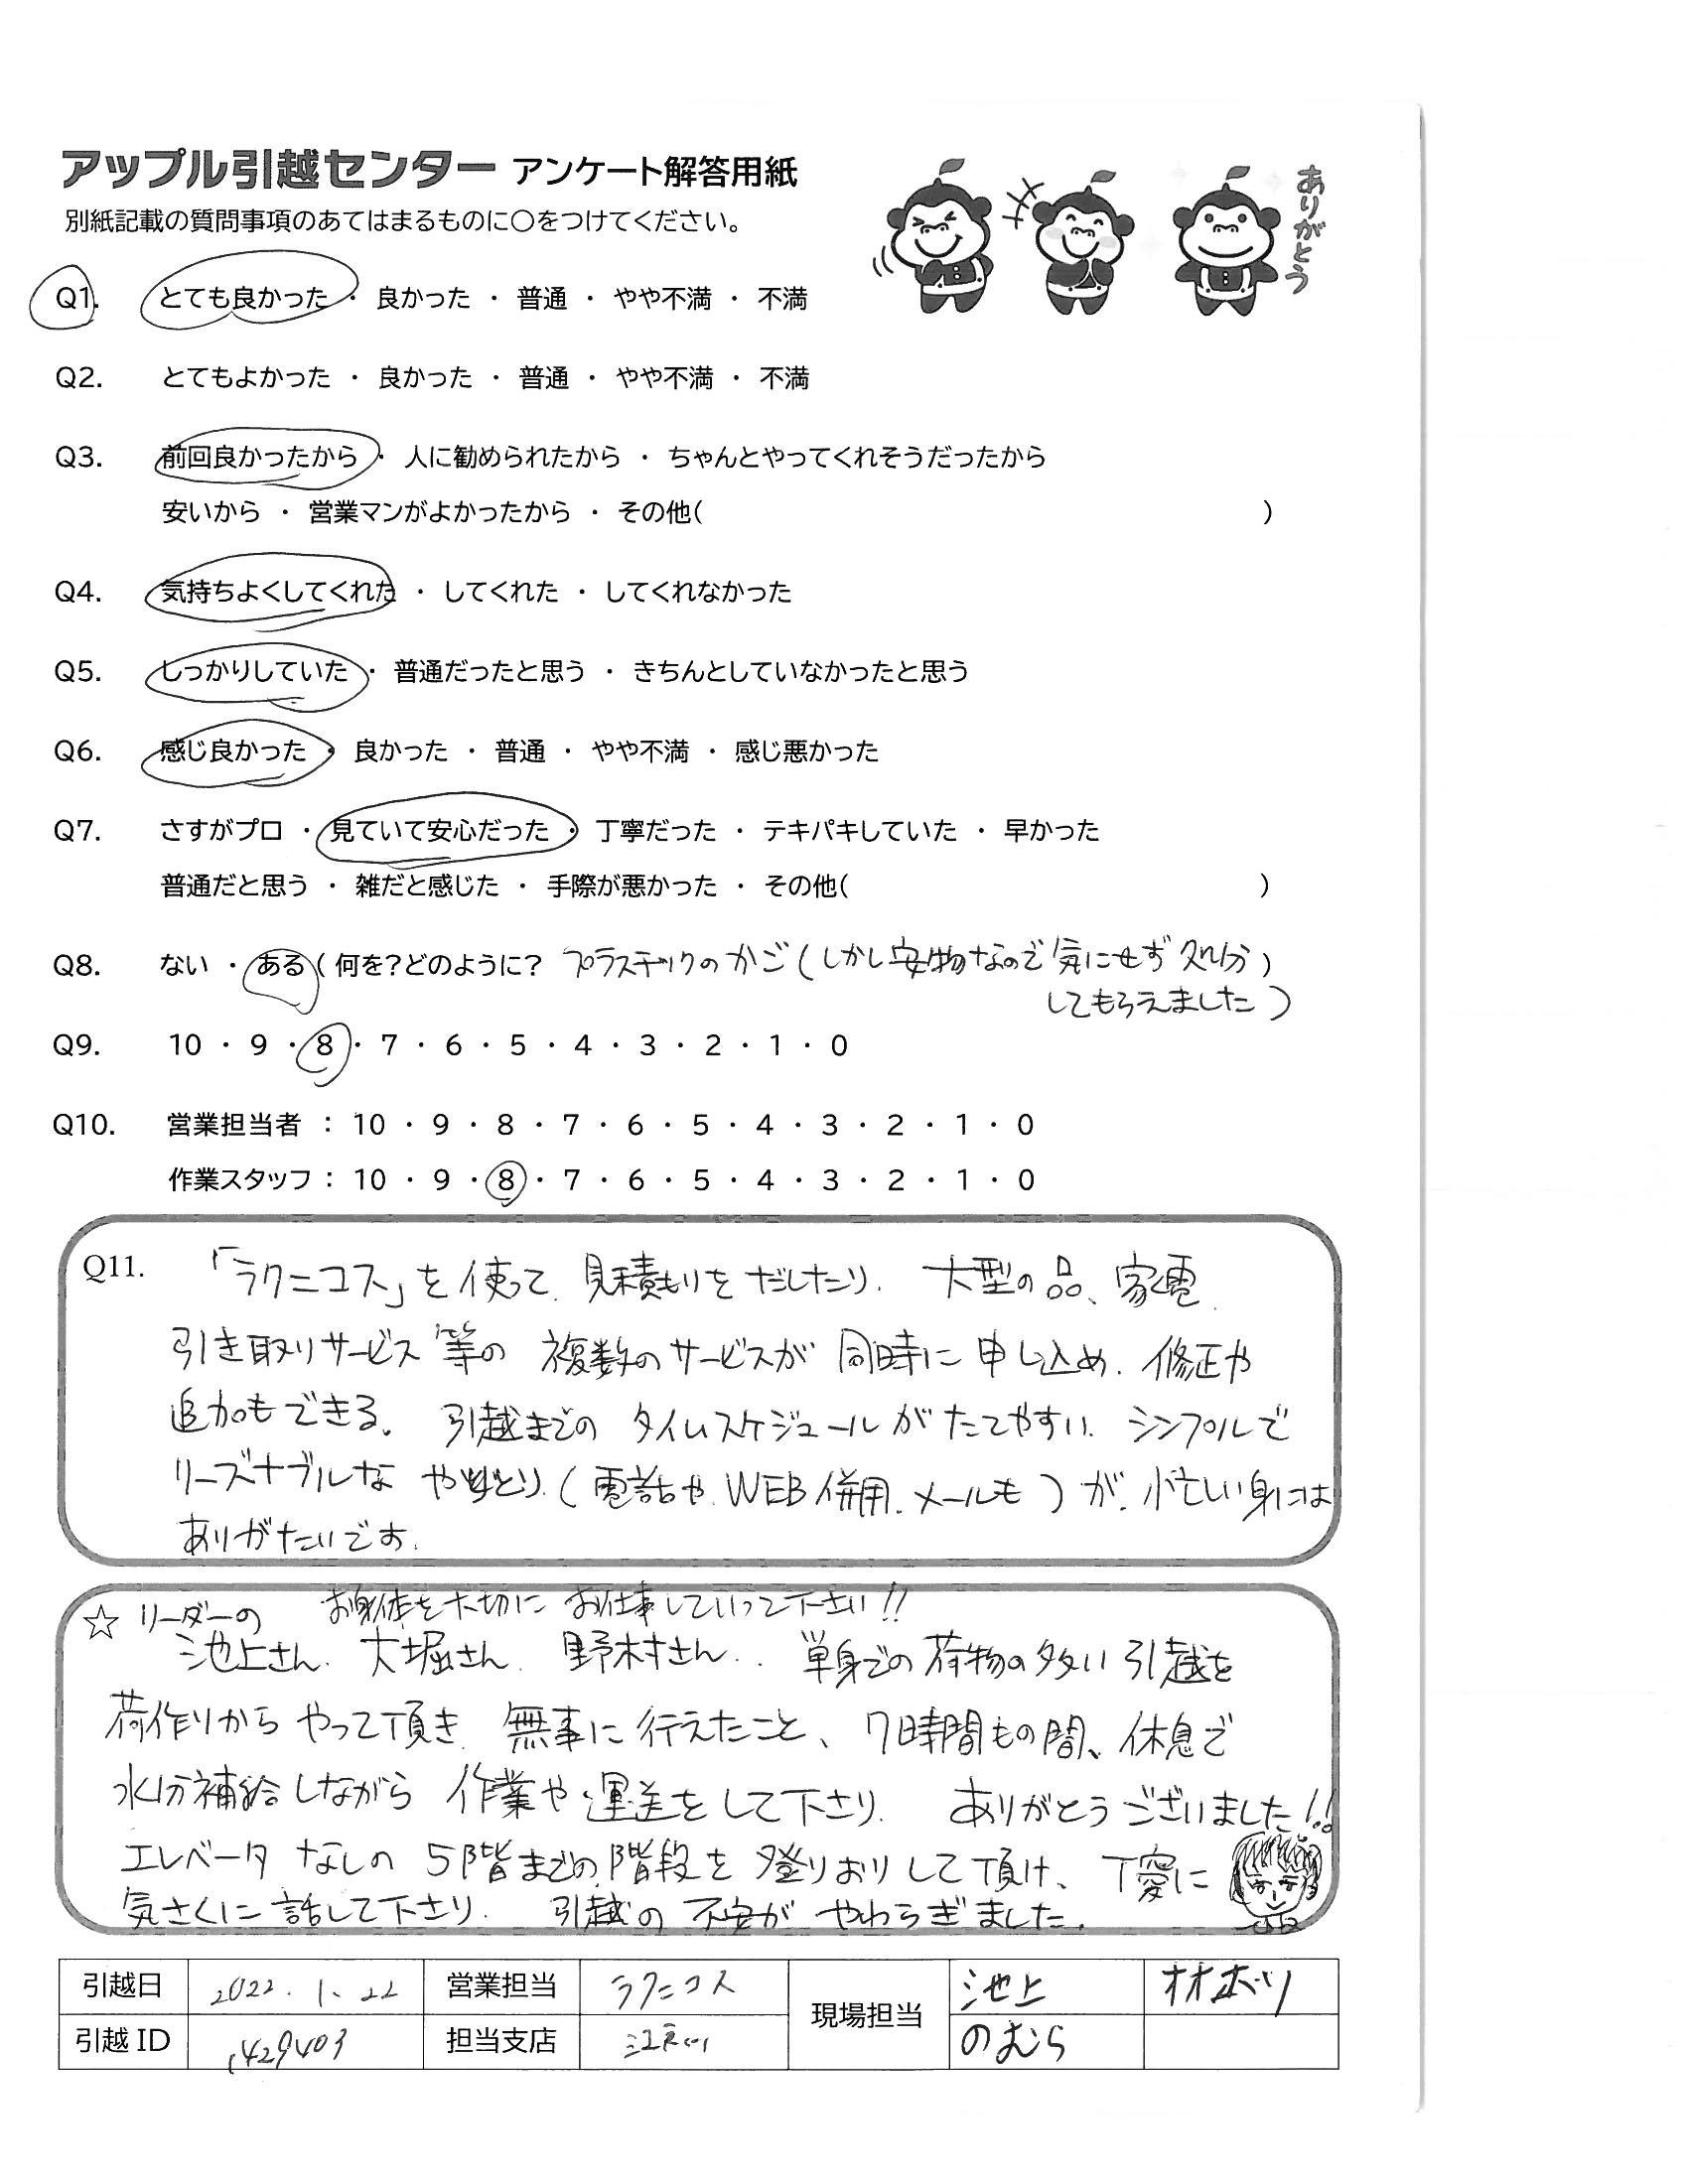 アップル引越センター アンケート解答用紙
別紙記載の質問事項のあてはまるものに○をつけてください。
ありがとう
Q1. とても良かった ・ 良かった ・ 普通 ・ やや不満 ・ 不満
Q2. とてもよかった ・ 良かった ・ 普通 ・ やや不満 ・ 不満
Q3. 前回良かったから ・ 人に勧められたから ・ ちゃんとやってくれそうだったから
安いから ・ 営業マンがよかったから ・ その他( )
Q4. 気持ちよくしてくれた ・ してくれた ・ してくれなかった
Q5. しっかりしていた ・ 普通だったと思う ・ きちんとしていなかったと思う
Q6. 感じ良かった ・ 良かった ・ 普通 ・ やや不満 ・ 感じ悪かった
Q7. さすがプロ ・ 見ていて安心だった ・ 丁寧だった ・ テキパキしていた ・ 早かった
普通だと思う ・ 雑だと感じた ・ 手際が悪かった ・ その他( )
Q8. ない ・ ある ( 何を?どのように? プラスチックのかご(しかし安物なので気にせず処分)
してもらえました)
Q9. 10 ・ 9 ・ 8 ・ 7 ・ 6 ・ 5 ・ 4 ・ 3 ・ 2 ・ 1 ・ 0
Q10. 営業担当者 : 10 ・ 9 ・ 8 ・ 7 ・ 6 ・ 5 ・ 4 ・ 3 ・ 2 ・ 1 ・ 0
作業スタッフ : 10 ・ 9 ・ 8 ・ 7 ・ 6 ・ 5 ・ 4 ・ 3 ・ 2 ・ 1 ・ 0
Q11. 「ラクニコス」を使って、見積もりをだしたり、大型の品、家電、
引き取りサービス等の複数のサービスが同時に申し込め、修正や
追加もできる。引越までのタイムスケジュールがたてやすい。シンプルで
リーズナブルなやりとり(電話や、WEB併用、メールも)が、忙しい身には
ありがたいです。
お身体を大切にお仕事していって下さい!!
☆ リーダーの
池上さん、大堀さん、野村さん、単身での荷物の多い引越を
荷作りからやって頂き、無事に行えたこと、7時間もの間、休息で
水分補給しながら作業や運送をして下さり、ありがとうございました!!
エレベータなしの5階までの階段を登りおりして頂け、丁寧に
気さくに話して下さり、引越の不安がやわらぎました。
引越日 2022.1.22 営業担当 ラクニコス 現場担当 池上 オオホリ
引越 ID 1429403 担当支店 のむら